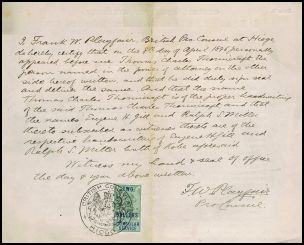 I, Frank W. Playfair British Pro Consul at Hiogo
do hereby certify that on the 8th day of April 1896 personally
appeared before me Thomas Charles Thornicraft the
person named in the power of attorney on the other
side hereof written, and that he did duly sign seal
and deliver the same. And that the name
Thomas Charles Thornicraft is of the proper handwriting
of the said Thomas Charles Thornicraft and that
the names Eugene H. Gill and Ralph S. Miller
thereto subscribed as witnesses thereto are of the
respective handwriting of Eugene H. Gill and
Ralph S. Miller both of Kobe aforesaid
Witness my hand & seal of office
the day & year above written.
F. W. Playfair
Pro Consul.
BRITISH
HIOGO
TWO
DOLLARS
CONSULAR
SERVICE